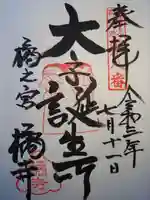 奉拝
令和三年
七月十一日
太子誕生所
橘之宮
橘寺